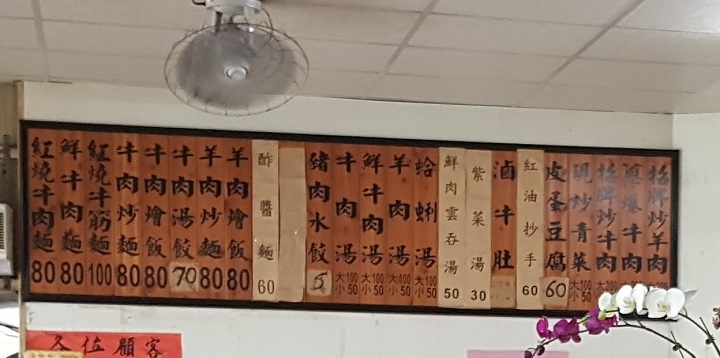 紅燒牛肉麵80
鮮牛肉麵80
紅燒牛筋麵100
牛肉炒麵80
牛肉燴飯80
牛肉湯餃70
羊肉炒麵80
羊肉燴飯80
酢醬麵60
豬肉水餃5
牛肉湯大100小50
鮮牛肉湯大100小50
羊肉湯大100小50
蛤蜊湯大100小50
鮮肉雲吞湯50
紫菜湯30
滷牛肚大100小50
紅油抄手60
皮蛋豆腐60
現炒青菜大100小50
招牌炒牛肉
蔥爆牛肉
招牌炒羊肉
各位顧客